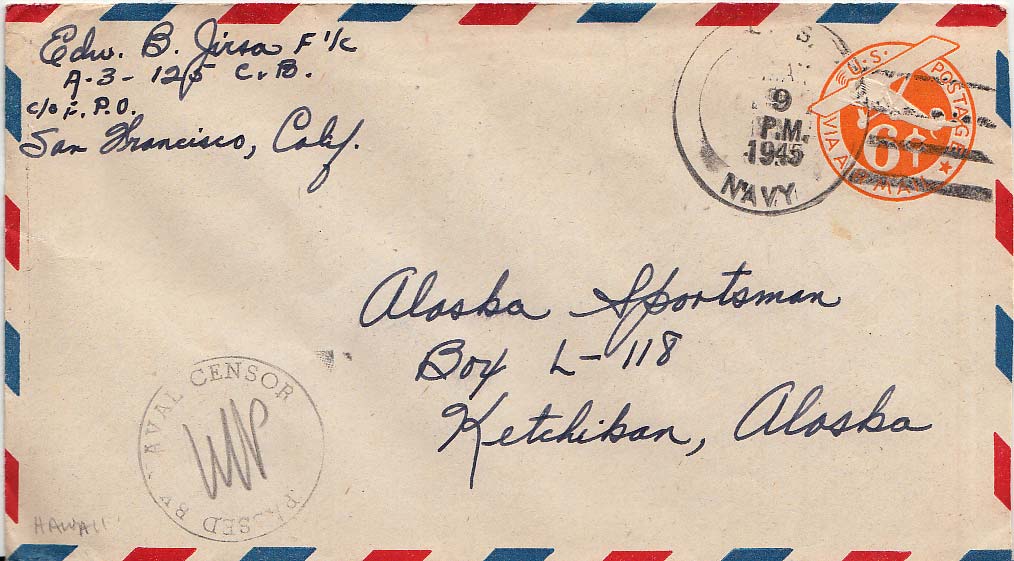 Edw. B. Jirsa F 1/c
A-3-125 C.B.
c/o F.P.O.
San Francisco, Calif.
U. S.
9
P.M.
1945
NAVY
U.S. POSTAGE
6¢
VIA AIR MAIL
Alaska Sportsman
Box L-118
Ketchikan, Alaska
PASSED BY NAVAL CENSOR
HAWAII